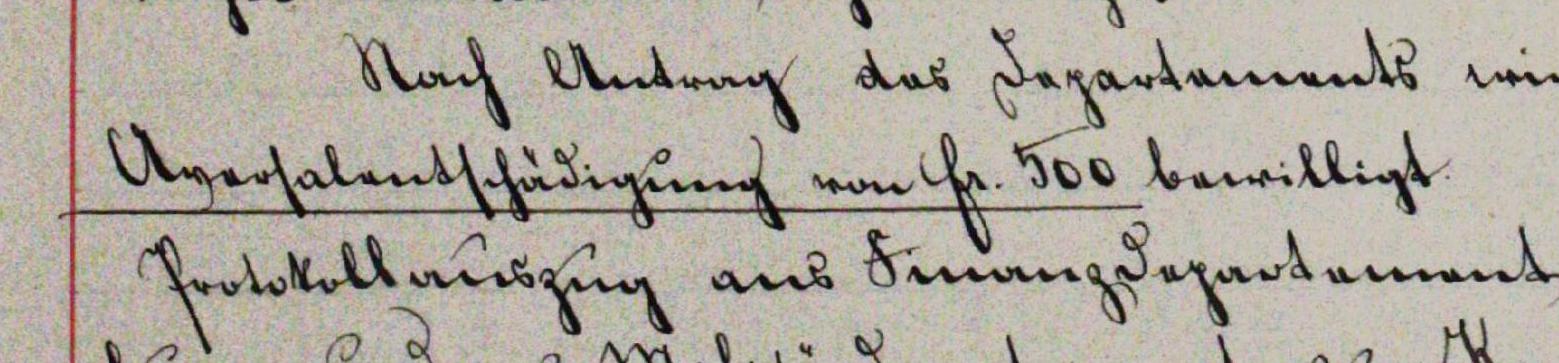 Nach Antrag des Departements
Aversalentschädigung von Fr. 500 bewilligt.
Protokollauszug ans Finanzdepartement